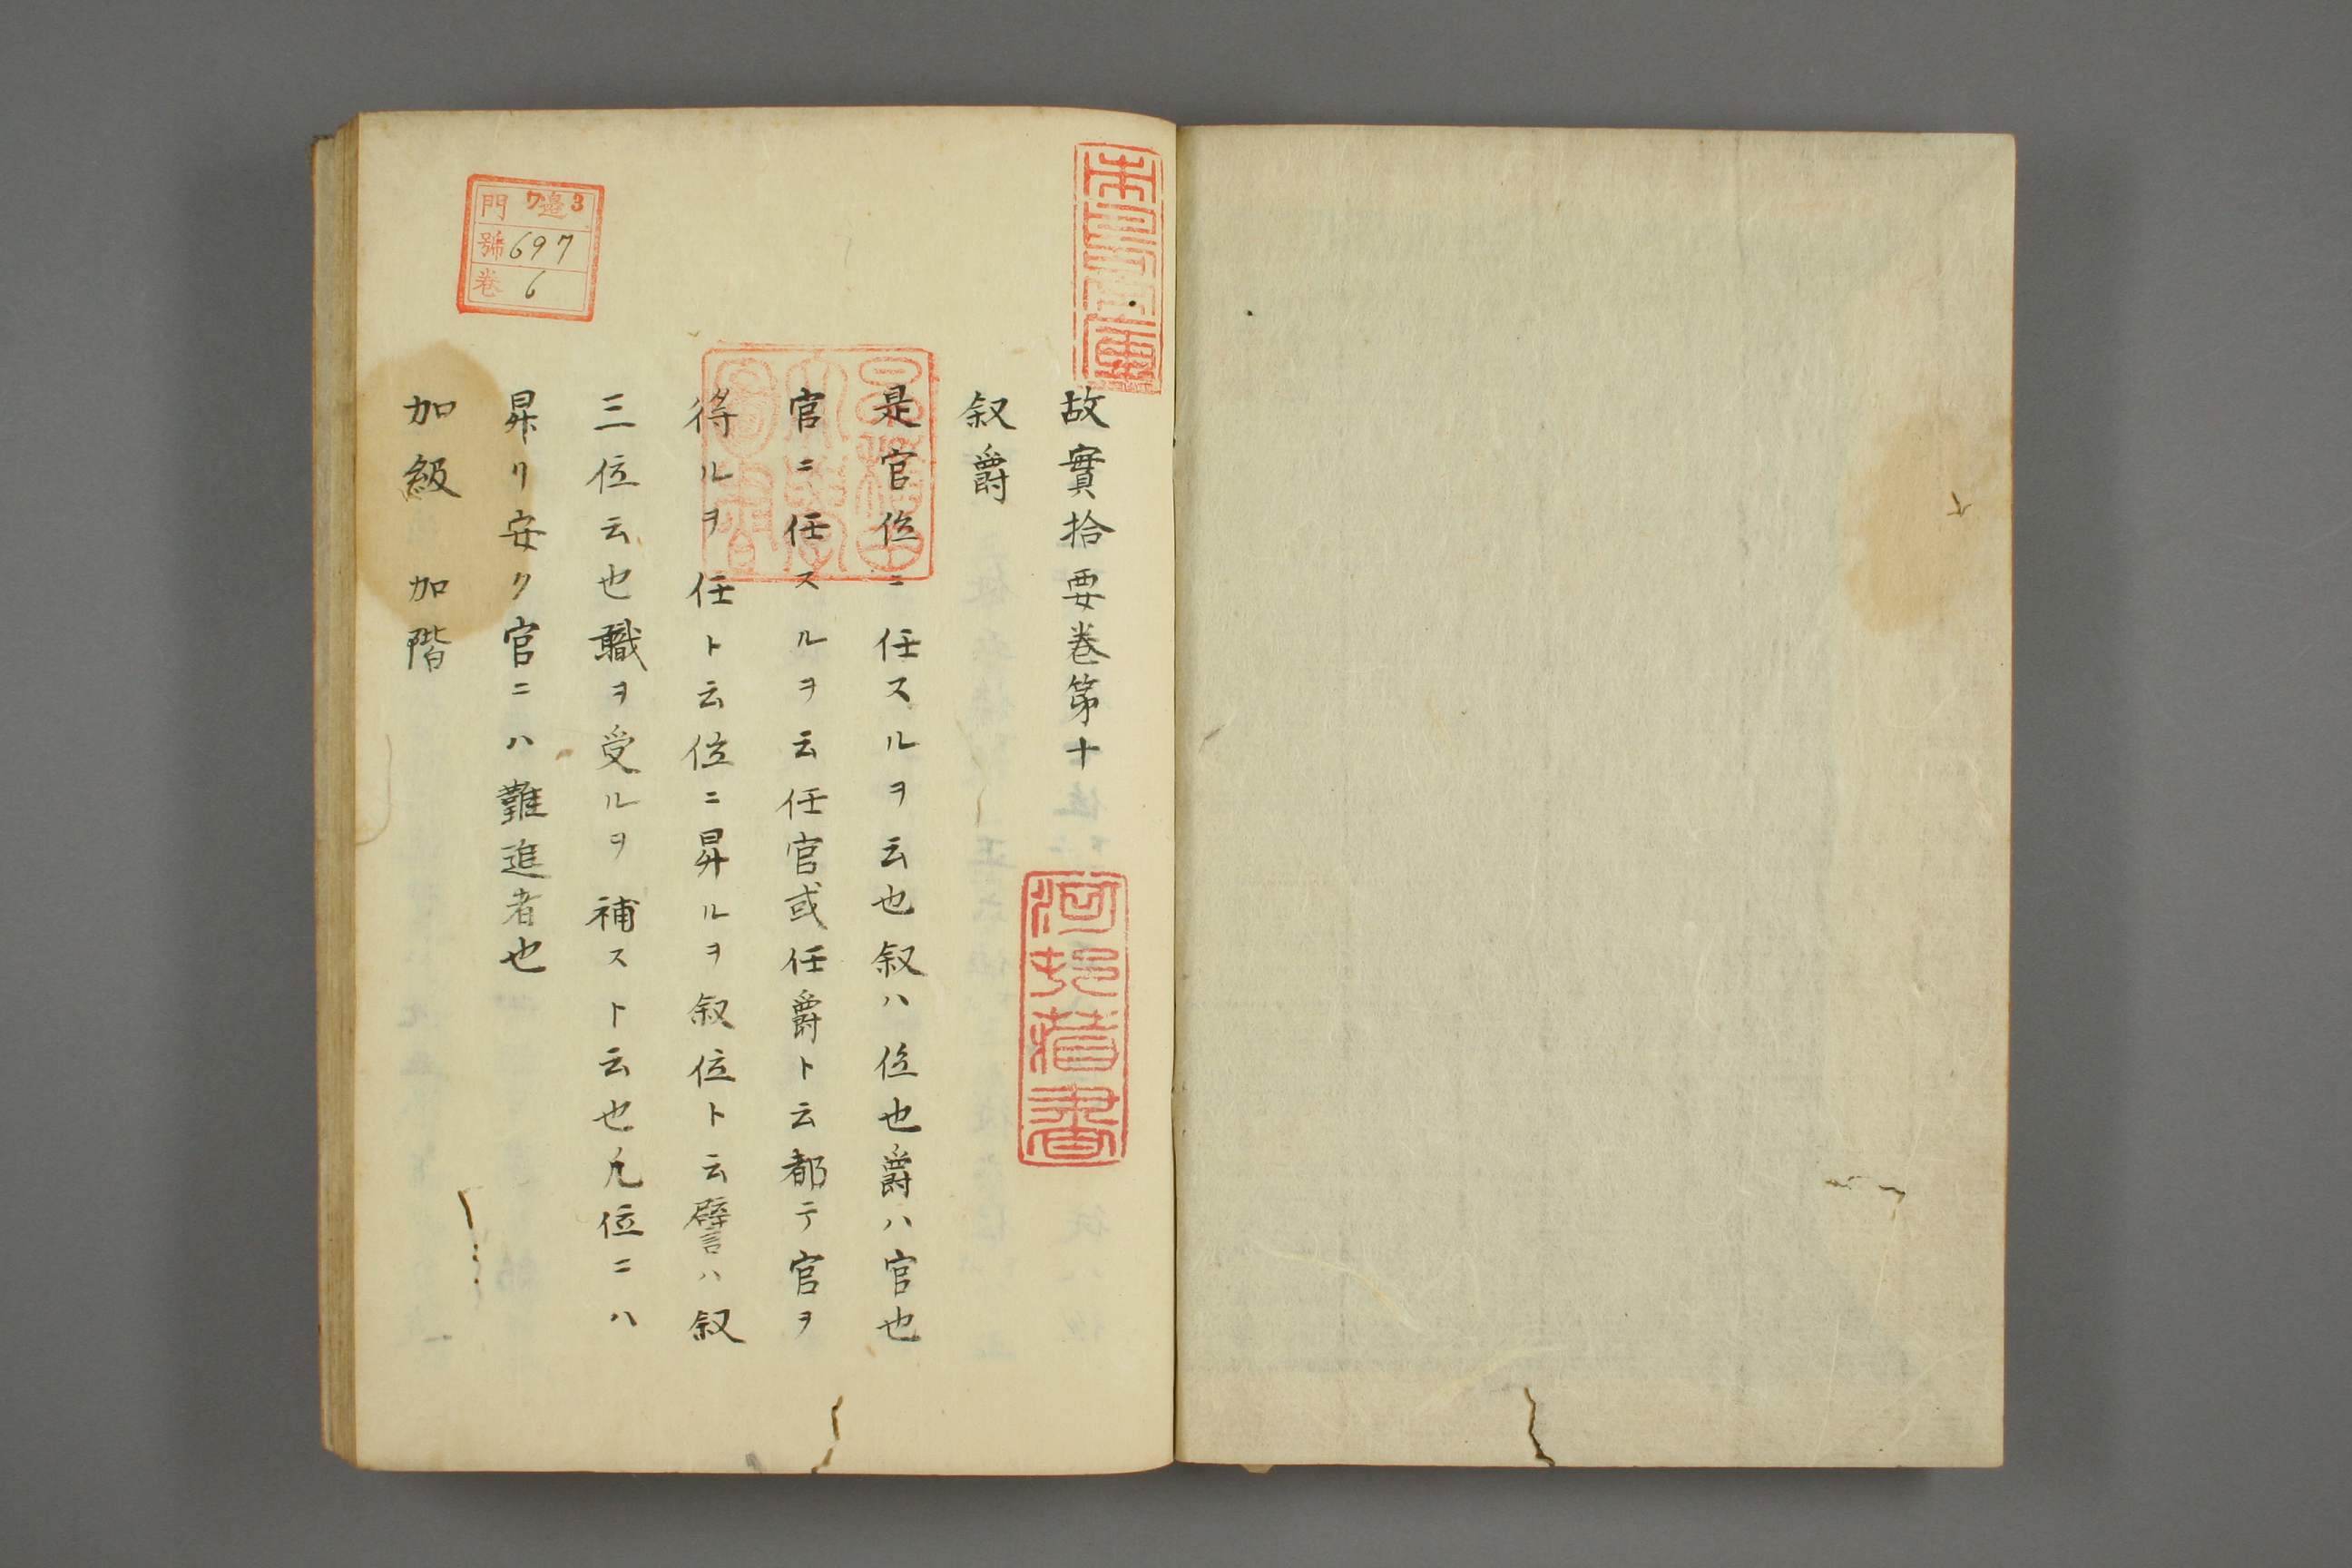 故實拾要卷第十
叙爵
是官位ニ任スルヲ云也叙ハ位也爵ハ官也
官ニ任スルヲ云任官或任爵ト云都テ官ヲ
得ルヲ任ト云位ニ昇ルヲ叙位ト云譬ハ叙
三位云也職ヲ受ルヲ補スト云也凡位ニハ
昇リ安ク官ニハ難進者也
加級 加階
門 7 邉 3
號 697
卷 6